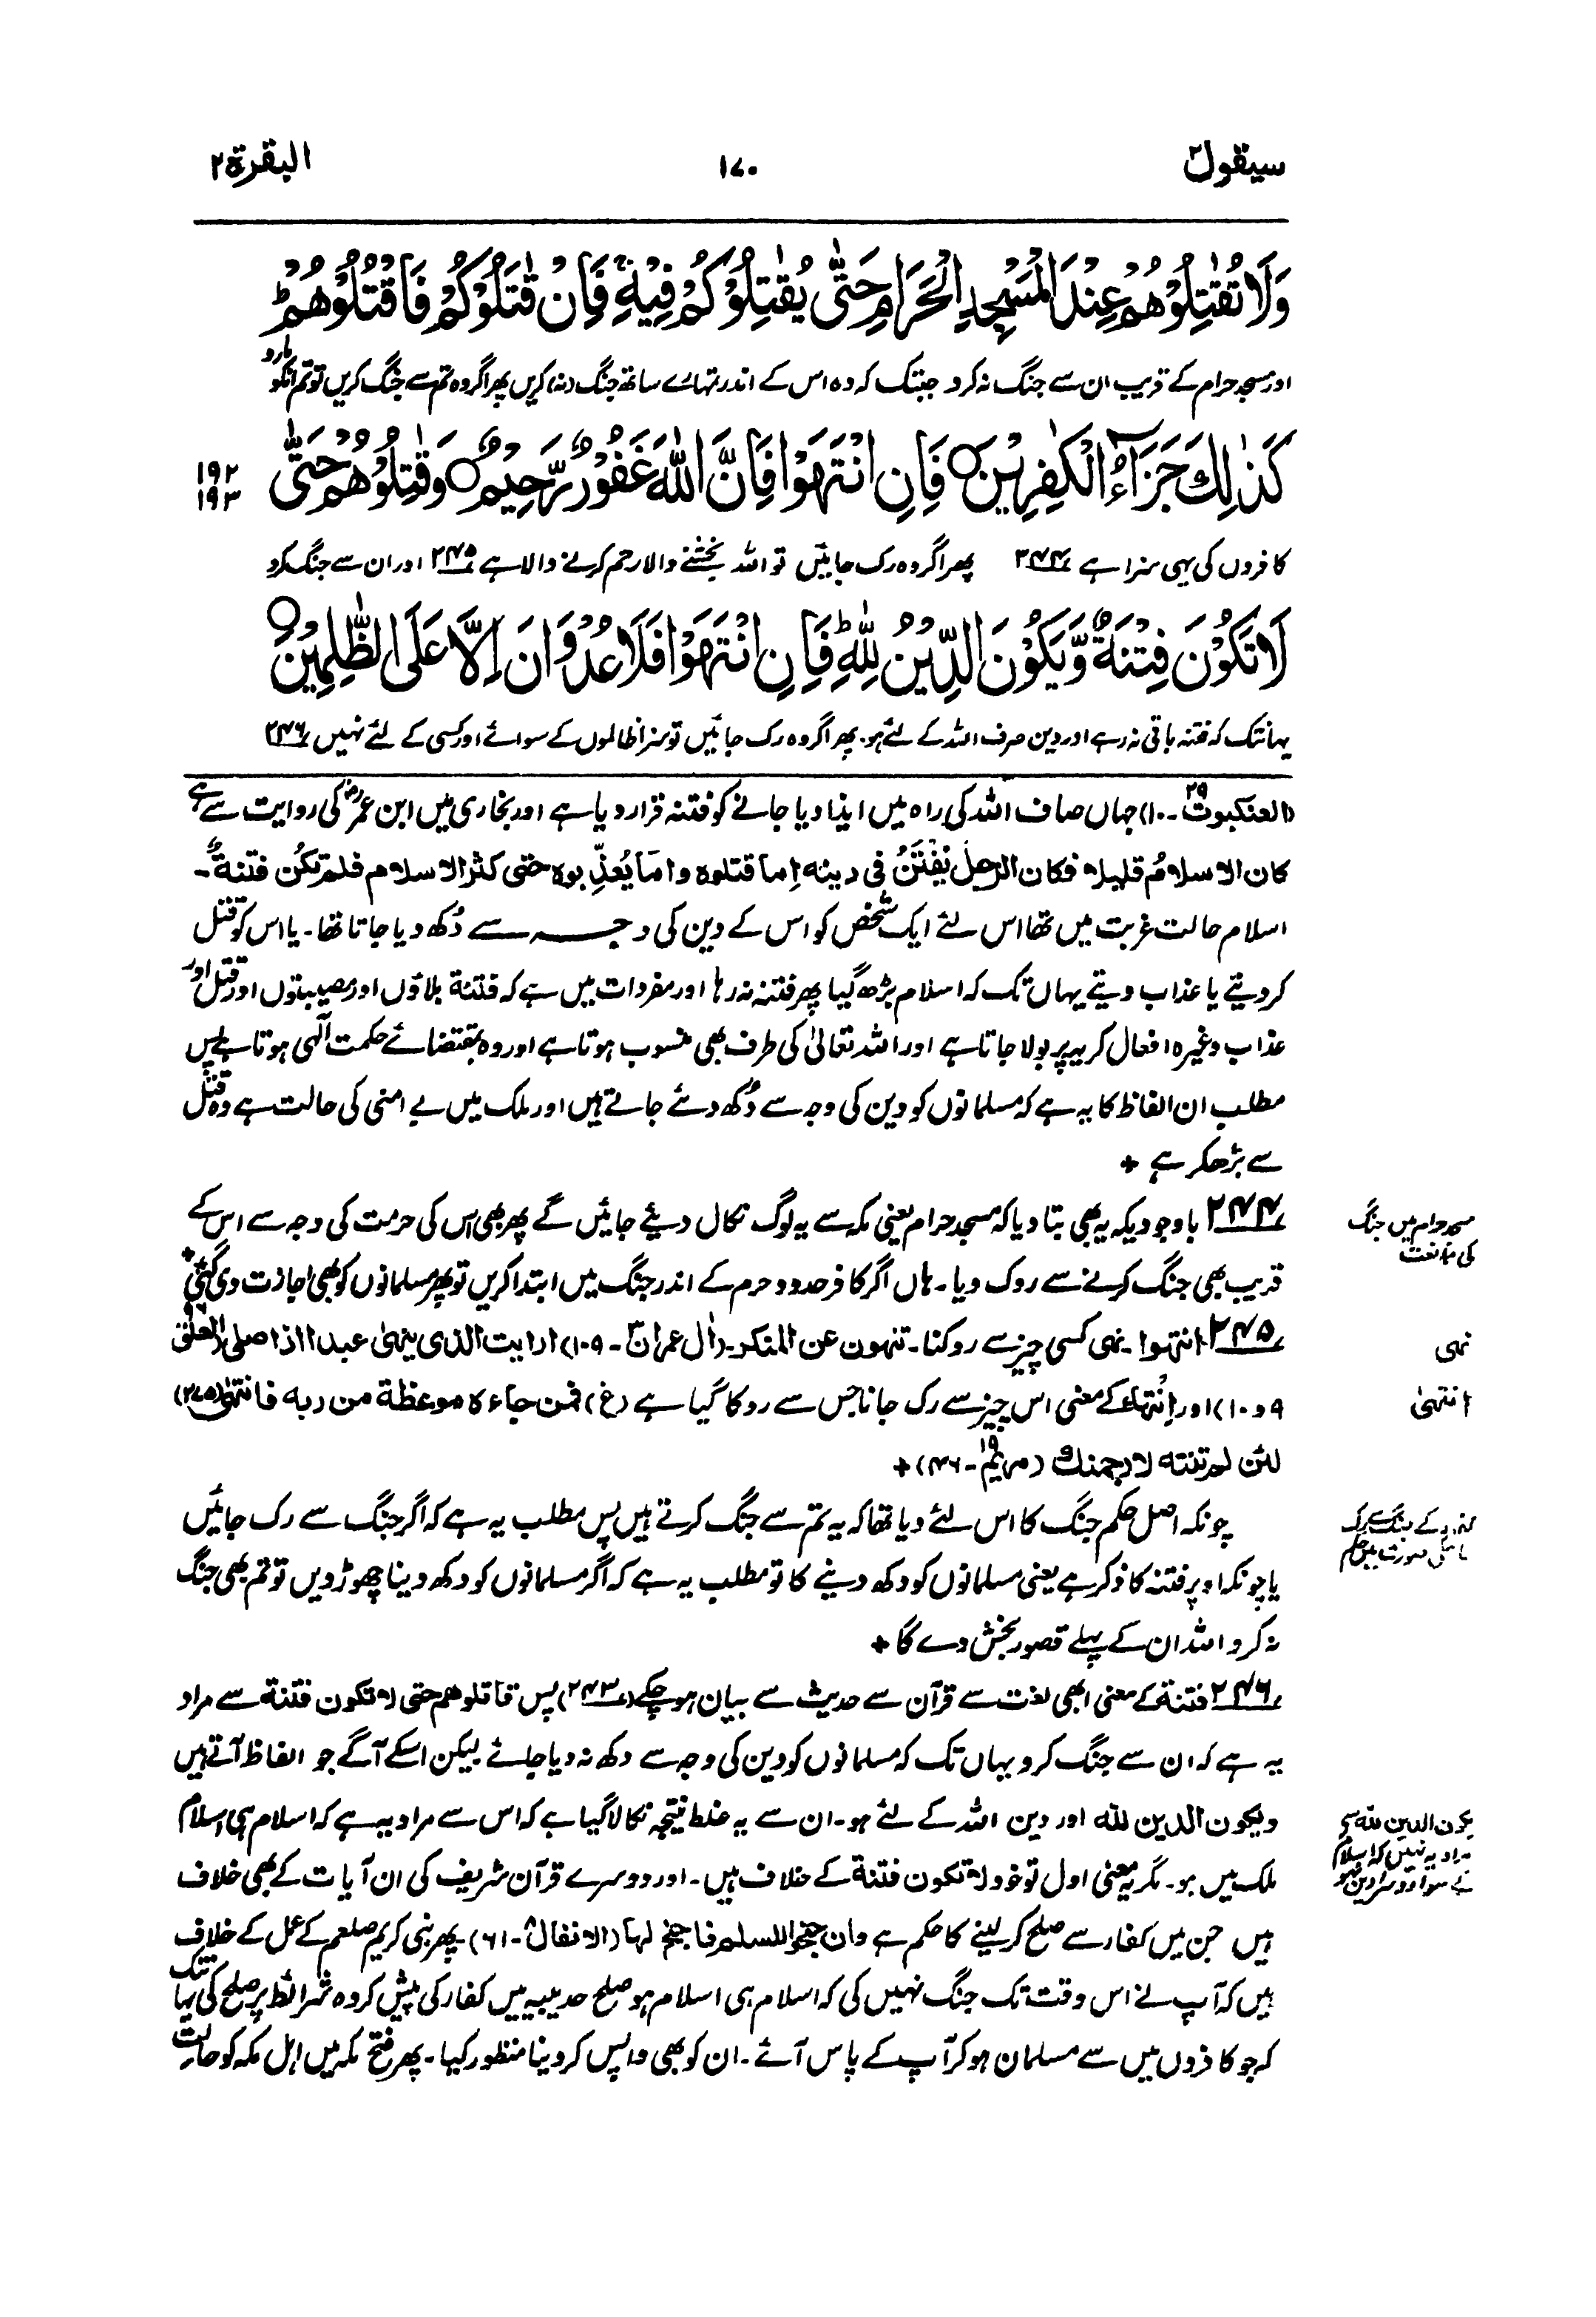 سیقول ۲
۱۷۰
البقرۃ ۲
وَلَا تُقٰتِلُوْهُمْ عِنْدَ الْمَسْجِدِ الْحَرَامِ حَتّٰى يُقٰتِلُوْكُمْ فِيْهِ ۚ فَاِنْ قٰتَلُوْكُمْ فَاقْتُلُوْهُمْ ؕ
اور مسجد حرام کے قریب ان سے جنگ نہ کرو جبتک کہ وہ اس کے اندر تمہارے ساتھ جنگ (نہ) کریں پھر اگر وہ تم سے جنگ کریں تو تم انکو مارو
كَذٰلِكَ جَزَآءُ الْكٰفِرِيْنَ ○ فَاِنِ انْتَهَوْا فَاِنَّ اللّٰهَ غَفُوْرٌ رَّحِيْمٌ ○ وَقٰتِلُوْهُمْ حَتّٰى
۱۹۲
۱۹۳
کافروں کی یہی سزا ہے ۲۴۴ پھر اگر وہ رک جائیں تو اللہ بخشنے والا رحم کرنے والا ہے ۲۴۵ اور ان سے جنگ کرو
لَا تَكُوْنَ فِتْنَةٌ وَّيَكُوْنَ الدِّيْنُ لِلّٰهِ ؕ فَاِنِ انْتَهَوْا فَلَا عُدْوَانَ اِلَّا عَلَى الظّٰلِمِيْنَ ○
یہانتک کہ فتنہ باقی نہ رہے اور دین صرف اللہ کے لئے ہو۔ پھر اگر وہ رک جائیں تو سزا ظالموں کے سوائے اور کسی کے لئے نہیں ۲۴۶
(العنکبوت ۲۹۔۱۰) جہاں صاف اللہ کی راہ میں ایذا دیا جانے کو فتنہ قرار دیا ہے اور بخاری میں ابن عمرؓ کی روایت سے ہے
کان الاسلامُ قلیلا فکان الرجلُ یُفْتَنُ فی دینہ اِما قتلوہ واِما یُعذِّبوہ حتی کثر الاسلام فلم تکُن فتنةٌ۔
اسلام حالت غربت میں تھا اس لئے ایک شخص کو اس کے دین کی وجہ سے دُکھ دیا جاتا تھا۔ یا اس کو قتل
کردیتے یا عذاب دیتے یہاں تک کہ اسلام بڑھ گیا پھر فتنہ نہ رہا اور مفردات میں ہے کہ فتنة بلاؤں اور مصیبتوں اور قتل اور
عذاب وغیرہ افعال کریہہ پر بولا جاتا ہے اور اللہ تعالیٰ کی طرف بھی منسوب ہوتا ہے اور وہ بمقتضائے حکمت الٰہی ہوتا ہے پس
مطلب ان الفاظ کا یہ ہے کہ مسلمانوں کو دین کی وجہ سے دُکھ دئے جاتے ہیں اور ملک میں بے امنی کی حالت ہے وہ قتل
سے بڑھکر ہے +
۲۴۴ باوجودیکہ یہ بھی بتا دیا کہ مسجد حرام یعنی مکہ سے یہ لوگ نکال دیئے جائیں گے پھر بھی اس کی حرمت کی وجہ سے اس کے
مسجد حرام میں جنگ
کی ممانعت
قریب بھی جنگ کرنے سے روک دیا۔ ہاں اگر کافر حدود حرم کے اندر جنگ میں ابتدا کریں تو پھر مسلمانوں کو بھی اجازت دی گئی +
۲۴۵ انتہوا۔ نہی کسی چیز سے روکنا۔ تنہون عن المنکر۔ (اٰل عمران ۳۔۱۰۹) ارایت الذی ینہیٰ عبدا اذا صلی (العلق ۹۶۔
نہی
۹ و ۱۰) اور اِنتہاء کے معنی اس چیز سے رک جانا جس سے روکا گیا ہے (غ) فمن جاءہ موعظة من ربہ فانتہیٰ (۲۷۵)
انتہیٰ
لئن لم تنتہ لارجمنک (مریم ۱۹۔۴۶) +
چونکہ اصل حکم جنگ کا اس لئے دیا تھا کہ یہ تم سے جنگ کرتے ہیں پس مطلب یہ ہے کہ اگر جنگ سے رک جائیں
کے جنگ سے رک
صورت میں حکم
یا چونکہ اوپر فتنہ کا ذکر ہے یعنی مسلمانوں کو دکھ دینے کا تو مطلب یہ ہے کہ اگر مسلمانوں کو دکھ دینا چھوڑ دیں تو تم بھی جنگ
نہ کرو اللہ ان کے پہلے قصور بخش دے گا +
۲۴۶ فتنة کے معنی ابھی لغت سے قرآن سے حدیث سے بیان ہو چکے (۲۴۳) پس قاتلوھم حتی لا تکون فتنة سے مراد
یہ ہے کہ ان سے جنگ کرو یہاں تک کہ مسلمانوں کو دین کی وجہ سے دکھ نہ دیا جائے لیکن اسکے آگے جو الفاظ آتے ہیں
ویکون الدین للہ اور دین اللہ کے لئے ہو۔ ان سے یہ غلط نتیجہ نکالا گیا ہے کہ اس سے مراد یہ ہے کہ اسلام ہی اسلام
یکون الدین للہ سے
مراد یہ نہیں کہ اسلام
کے سوا دوسرا دین نہ ہو
ملک میں ہو۔ مگر یہ معنی اول تو خود لا تکون فتنة کے خلاف ہیں۔ اور دوسرے قرآن شریف کی ان آیات کے بھی خلاف
ہیں جن میں کفار سے صلح کر لینے کا حکم ہے وان جنحوا للسلم فاجنح لہا (الانفال ۸۔۶۱) پھر نبی کریم صلعم کے عمل کے خلاف
ہیں کہ آپ نے اس وقت تک جنگ نہیں کی کہ اسلام ہی اسلام ہو صلح حدیبیہ میں کفار کی پیش کردہ شرائط پر صلح کی یہا نتک
کہ جو کافروں میں سے مسلمان ہو کر آپ کے پاس آئے۔ ان کو بھی واپس کر دینا منظور کیا۔ پھر فتح مکہ میں اہل مکہ کو حالت